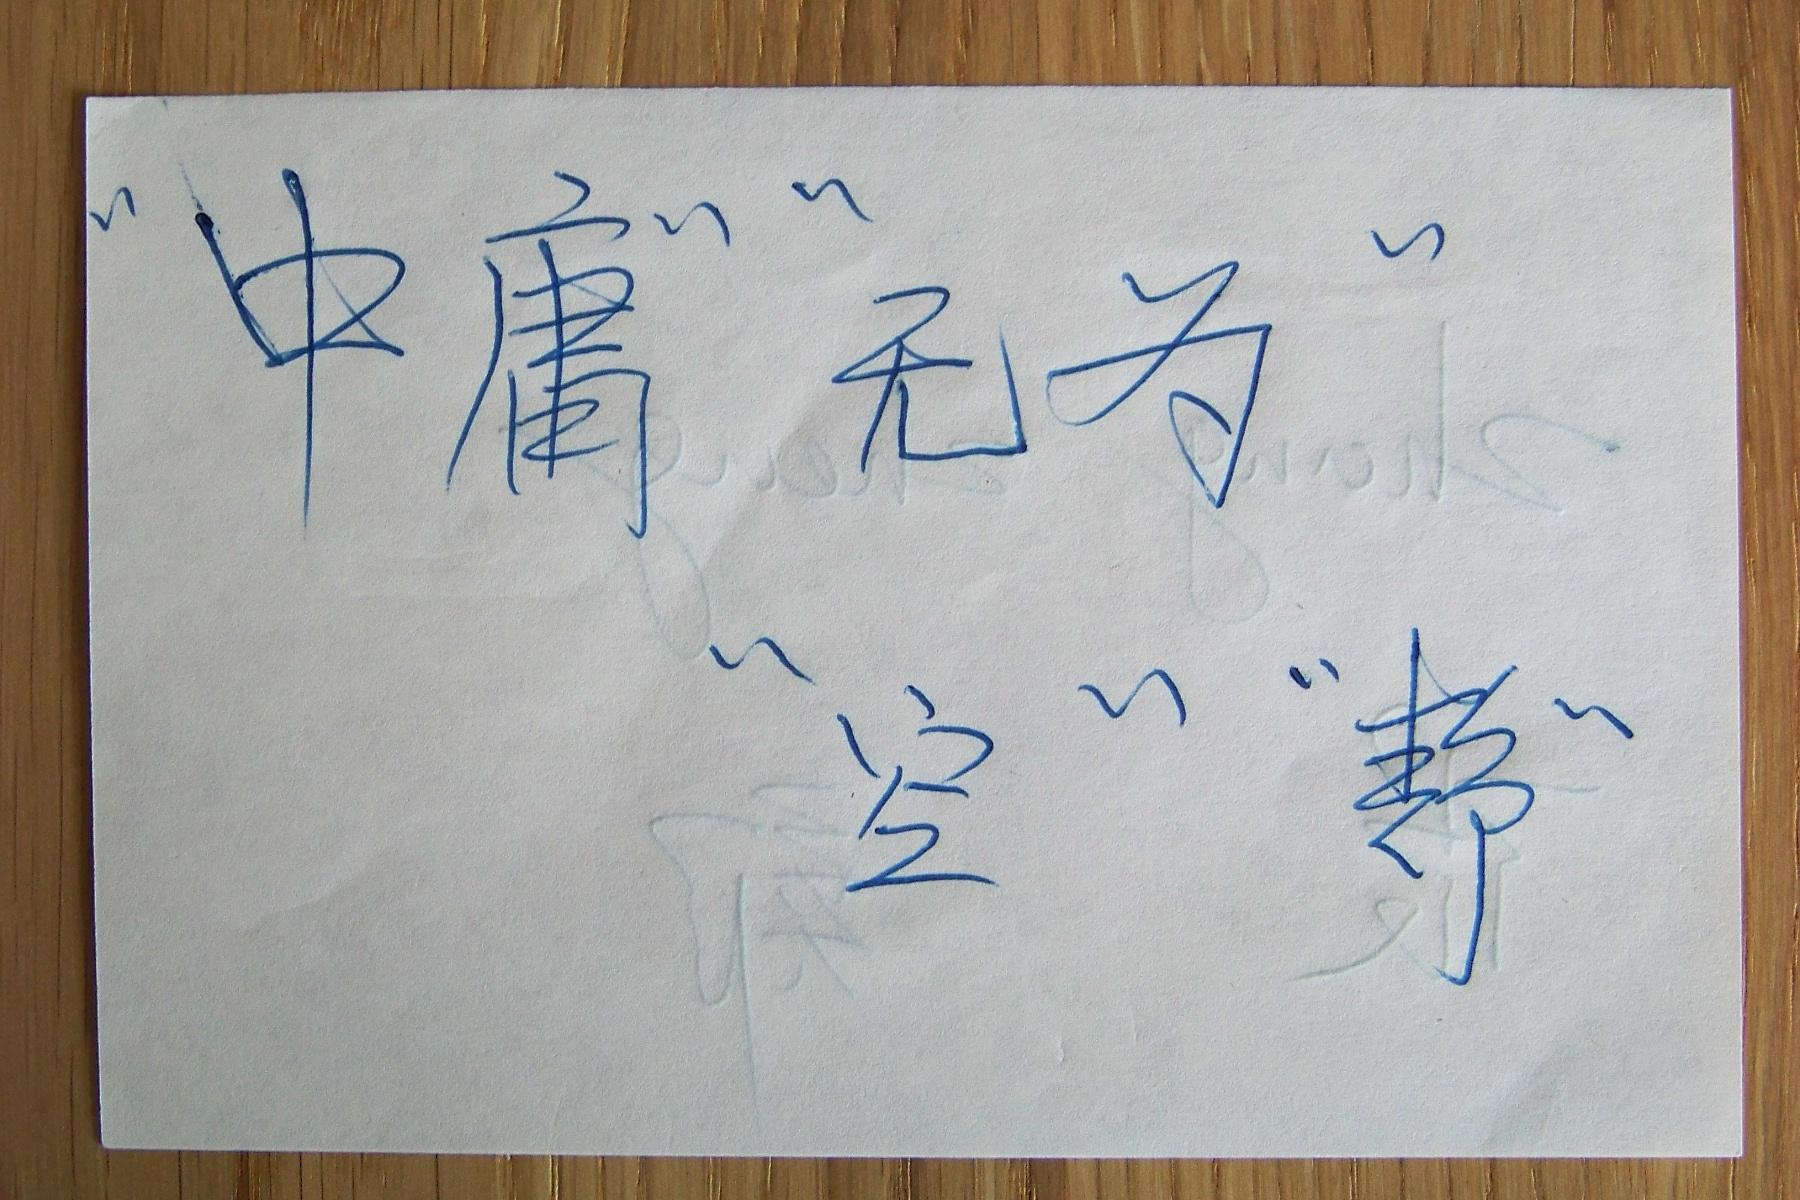 “中庸”“无为”
“空”“静”